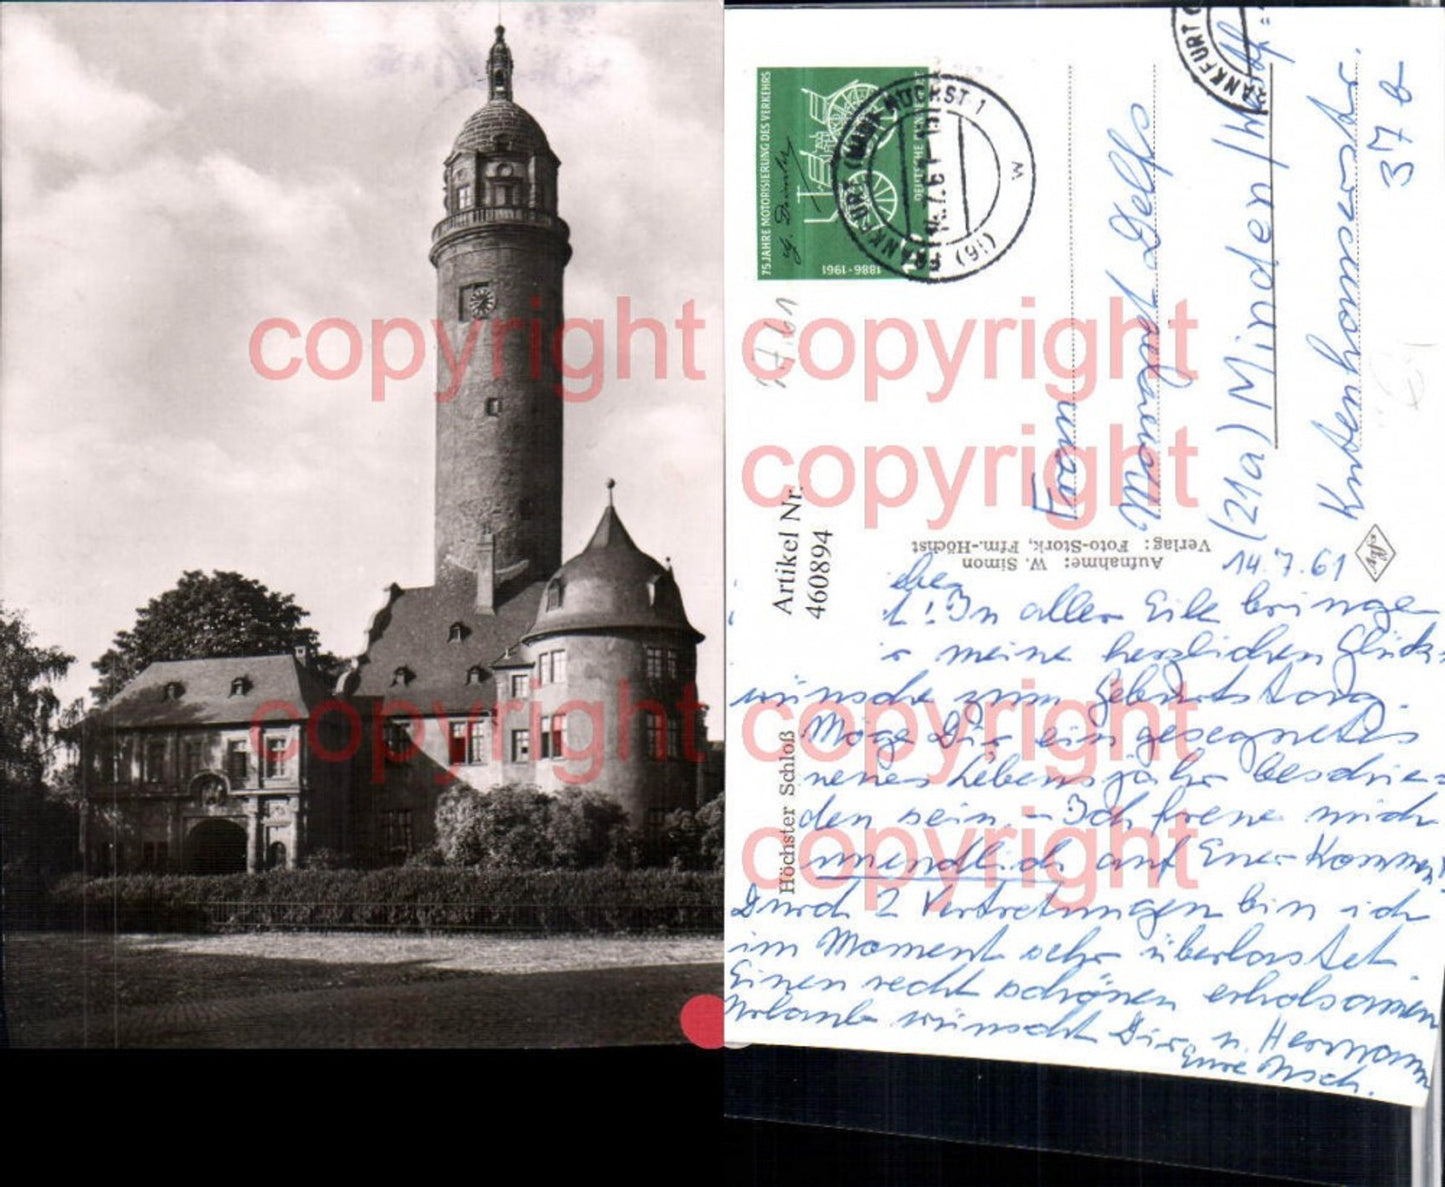 copyright
copyright
copyright
copyright
copyright
copyright
75 JAHRE MOTORISIERUNG DES VERKEHRS
G. Daimler
1886-1961
DEUTSCHE BUNDESPOST
(16) FRANKFURT (MAIN) HÖCHST 1
14.7.61
w
FRANKFURT
Frau
Margret Delfs
(21a) Minden/Westf.
Kutenhauserstr.
37 b
Artikel Nr.
460894
Höchster Schloß
Aufnahme: W. Simon
Verlag: Foto-Stork, Ffm.-Höchst
Agfa
14.7.61
! In aller Eile bringe
meine herzlichen Glück-
wünsche zum Geburtstag.
Möge Dir ein gesegnetes
neues Lebensjahr beschie-
den sein. - Ich freue mich
unendlich auf Euer Kommen.
Durch 2 Vertretungen bin ich
im Moment sehr überlastet.
Einen recht schönen erholsamen
Urlaub wünscht Dir u. Hermann
Eure